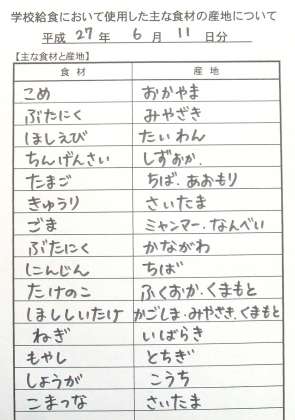 学校給食において使用した主な食材の産地について
平成 27 年 6 月 11 日分
【主な食材と産地】
食材 産地
こめ おかやま
ぶたにく みやざき
ほしえび たいわん
ちんげんさい しずおか.
たまご ちば.あおもり
きゅうり さいたま
ごま ミャンマー.なんべい
ぶたにく かながわ
にんじん ちば
たけのこ ふくおか.くまもと
ほししいたけ かごしま.みやざき.くまもと
ねぎ いばらき
もやし とちぎ
しょうが こうち
こまつな さいたま